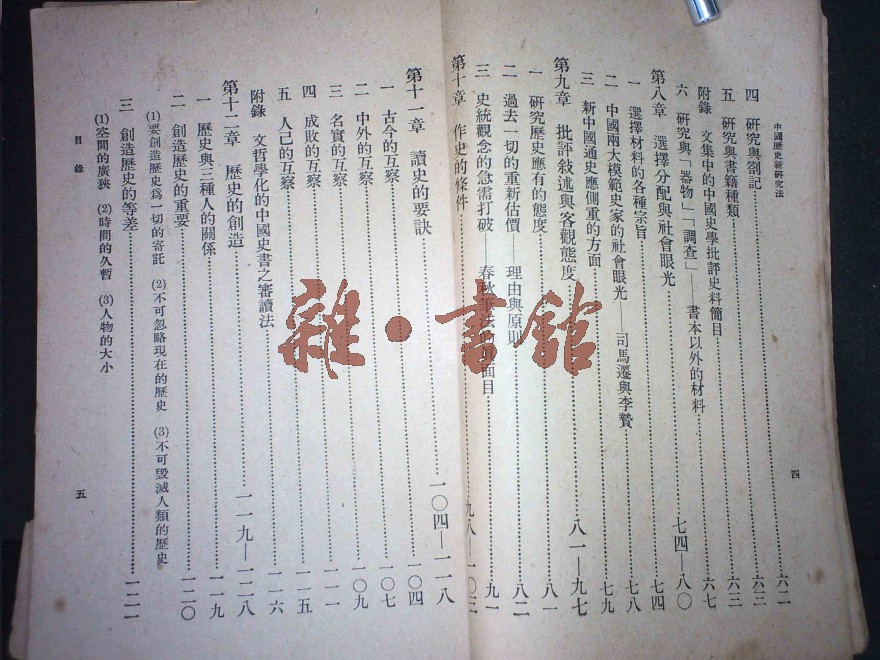 中國歷史新研究法
四 研究與劄記……六二
五 研究與書籍種類……六三
附錄 文集中的中國史學批評史料簡目……六三
六 研究與「器物」「調查」——書本以外的材料……六七
第八章 選擇分配與社會眼光……七四—八〇
一 選擇材料的各種宗旨……七四
二 中國兩大模範史家的社會眼光——司馬遷與李贄……七八
三 新中國通史應側重的方面……七九
第九章 批評敍述與客觀態度……八一—九七
一 研究歷史應有的態度……八一
二 過去一切的重新估價——理由與原則……八二
三 史統觀念的急需打破——春秋筆法的 面目……九一
第十章 作史的條件……九八—一〇三
四
第十一章 讀史的要訣……一〇四—一一八
一 古今的互察……一〇四
二 中外的互察……一〇七
三 名實的互察……一〇九
四 成敗的互察……一一一
五 人己的互察……一一五
附錄 文哲學化的中國史書之審讀法……一一六
第十二章 歷史的創造……一一九—一二八
一 歷史與三種人的關係……一一九
二 創造歷史的重要……一二〇
(1)要創造歷史爲一切的寄託 (2)不可忽略現在的歷史 (3)不可毀滅人類的歷史
三 創造歷史的等差……一二一
(1)空間的廣狹 (2)時間的久暫 (3)人物的大小
目錄
五
雜·書館